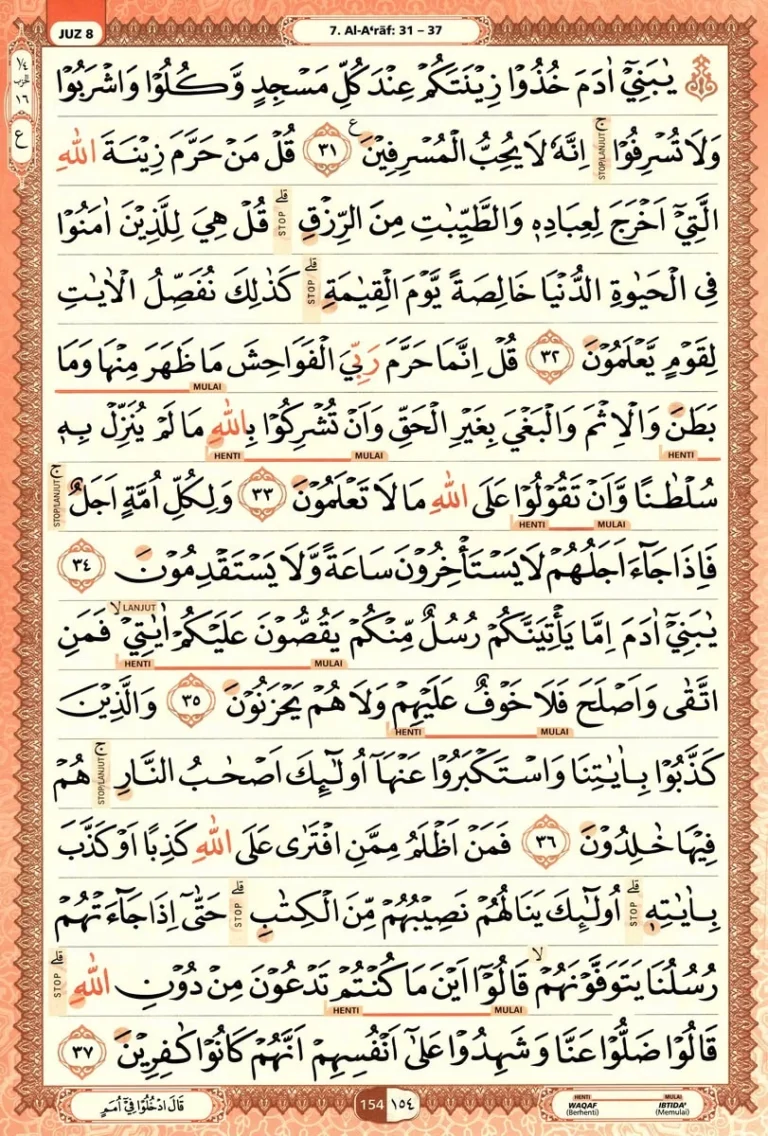 JUZ 8
7. Al-A‘rāf: 31 – 37
¼
الحزب
١٦
ع
يٰبَنِيْٓ اٰدَمَ خُذُوْا زِيْنَتَكُمْ عِنْدَ كُلِّ مَسْجِدٍ وَّكُلُوْا وَاشْرَبُوْا
وَلَا تُسْرِفُوْاۚ STOP/LANJUT اِنَّهٗ لَا يُحِبُّ الْمُسْرِفِيْنَ ࣖ ٣١ قُلْ مَنْ حَرَّمَ زِيْنَةَ اللّٰهِ
الَّتِيْٓ اَخْرَجَ لِعِبَادِهٖ وَالطَّيِّبٰتِ مِنَ الرِّزْقِۗ STOP قُلْ هِيَ لِلَّذِيْنَ اٰمَنُوْا
فِى الْحَيٰوةِ الدُّنْيَا خَالِصَةً يَّوْمَ الْقِيٰمَةِۗ STOP كَذٰلِكَ نُفَصِّلُ الْاٰيٰتِ
لِقَوْمٍ يَّعْلَمُوْنَ ٣٢ قُلْ اِنَّمَا حَرَّمَ رَبِّيَ الْفَوَاحِشَ مَا ظَهَرَ مِنْهَا وَمَا
MULAI
بَطَنَ وَالْاِثْمَ وَالْبَغْيَ بِغَيْرِ الْحَقِّ وَاَنْ تُشْرِكُوْا بِاللّٰهِ مَا لَمْ يُنَزِّلْ بِهٖ
HENTI MULAI HENTI
سُلْطٰنًا وَّاَنْ تَقُوْلُوْا عَلَى اللّٰهِ مَا لَا تَعْلَمُوْنَ ٣٣ وَلِكُلِّ اُمَّةٍ اَجَلٌۚ STOP/LANJUT
MULAI HENTI
فَاِذَا جَاۤءَ اَجَلُهُمْ لَا يَسْتَأْخِرُوْنَ سَاعَةً وَّلَا يَسْتَقْدِمُوْنَ ٣٤
يٰبَنِيْٓ اٰدَمَ اِمَّا يَأْتِيَنَّكُمْ رُسُلٌ مِّنْكُمْ يَقُصُّوْنَ عَلَيْكُمْ اٰيٰتِيْۙ LANJUT فَمَنِ
MULAI HENTI
اتَّقٰى وَاَصْلَحَ فَلَا خَوْفٌ عَلَيْهِمْ وَلَا هُمْ يَحْزَنُوْنَ ٣٥ وَالَّذِيْنَ
MULAI HENTI
كَذَّبُوْا بِاٰيٰتِنَا وَاسْتَكْبَرُوْا عَنْهَآ اُولٰۤىِٕكَ اَصْحٰبُ النَّارِۚ STOP/LANJUT هُمْ
فِيْهَا خٰلِدُوْنَ ٣٦ فَمَنْ اَظْلَمُ مِمَّنِ افْتَرٰى عَلَى اللّٰهِ كَذِبًا اَوْ كَذَّبَ
بِاٰيٰتِهٖۗ STOP اُولٰۤىِٕكَ يَنَالُهُمْ نَصِيْبُهُمْ مِّنَ الْكِتٰبِۗ STOP حَتّٰٓى اِذَا جَاۤءَتْهُمْ
رُسُلُنَا يَتَوَفَّوْنَهُمْۙ قَالُوْٓا اَيْنَ مَا كُنْتُمْ تَدْعُوْنَ مِنْ دُوْنِ اللّٰهِۗ STOP
MULAI HENTI
قَالُوْا ضَلُّوْا عَنَّا وَشَهِدُوْا عَلٰٓى اَنْفُسِهِمْ اَنَّهُمْ كَانُوْا كٰفِرِيْنَ ٣٧
قَالَ ادْخُلُوْا فِيْٓ اُمَمٍ
154 ١٥٤
HENTI MULAI
WAQAF IBTIDA'
(Berhenti) (Memulai)